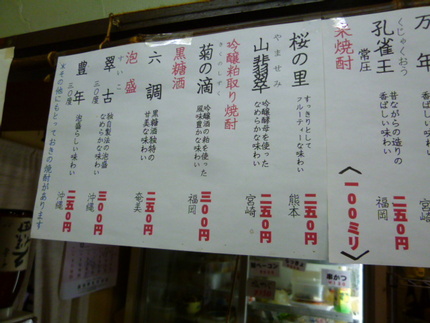 万年
香ばしい味わい
二五〇円
くじゃくおう
孔雀王
常圧
昔ながらの造りの
香ばしい味わい
福岡
二五〇円
米焼酎
〈一〇〇ミリ〉
桜の里
すっきりとして
フルーティーな味わい
熊本
二五〇円
やませみ
山翡翠
吟醸酵母を使った
なめらかな味わい
宮崎
二五〇円
吟醸粕取り焼酎
きくのしずく
菊の滴
吟醸酒の粕を使った
風味豊かな味わい
福岡
三〇〇円
黒糖酒
六調
黒糖酒独特の
甘美な味わい
奄美
二五〇円
泡盛
すいこ
翠古
三〇度
独自製法の泡盛
なめらかな味わい
沖縄
三〇〇円
豊年
三〇度
泡盛らしい味わい
沖縄
二五〇円
×その他にもとっておきの焼酎があります